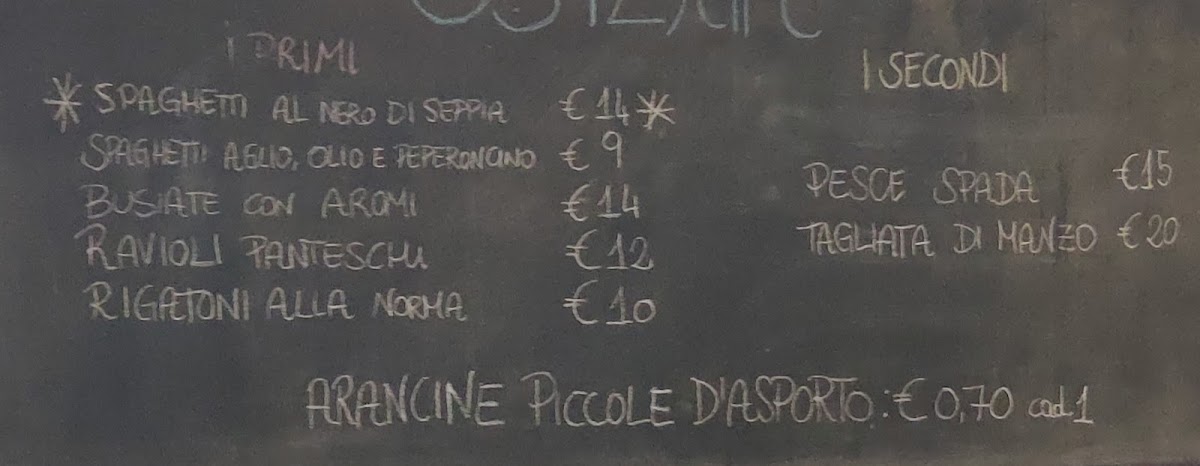 I PRIMI
* SPAGHETTI AL NERO DI SEPPIA €14 *
SPAGHETTI AGLIO, OLIO E PEPERONCINO €9
BUSIATE CON AROMI €14
RAVIOLI PANTESCHI €12
RIGATONI ALLA NORMA €10
I SECONDI
PESCE SPADA €15
TAGLIATA DI MANZO €20
ARANCINE PICCOLE D'ASPORTO: € 0,70 cad.1